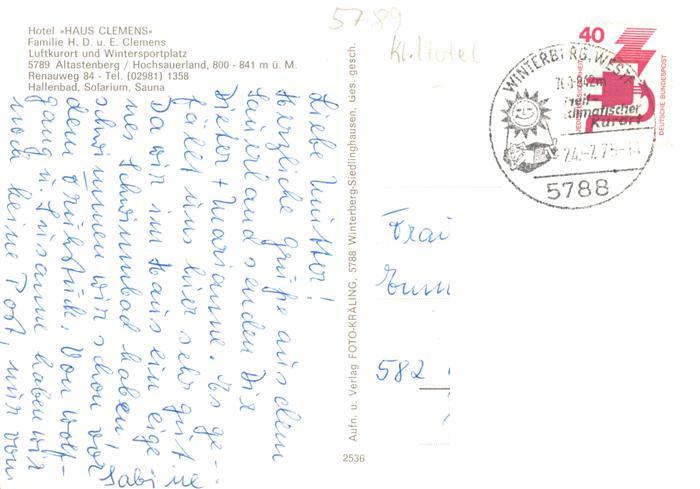 Hotel »HAUS CLEMENS«
Familie H. D. u. E. Clemens
Luftkurort und Wintersportplatz
5789 Altastenberg / Hochsauerland, 800 - 841 m ü. M.
Renauweg 84 - Tel. (02981) 1358
Hallenbad, Solarium, Sauna
5789
Kl. Hotel
Liebe Mutter!
Herzliche Grüße aus dem
Sauerland senden Dir
Dieter + Marianne. Es ge-
fällt uns hier sehr gut.
Da wir im Haus ein eige-
nes Schwimmbad haben,
schwimmen wir schon vor
dem Frühstück. Von Wolf-
gang u. Susanne haben wir
noch keine Post, nur von
Sabine
Aufn. u. Verlag FOTO-KRÄLING, 5788 Winterberg-Siedlinghausen, Ges. gesch.
2536
40
DEUTSCHE BUNDESPOST
WINTERBERG, WESTF
heil-
klimatischer
Kurort
24.-7.75-
5788
Frau
582